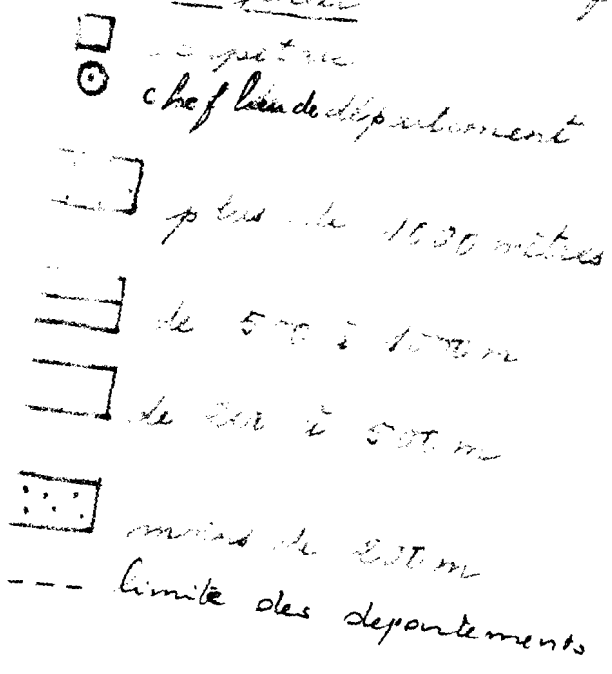 capitale
chef lieu de département
plus de 1000 mètres
de 500 à 1000 m
de 200 à 500 m
moins de 200 m
limite des departements